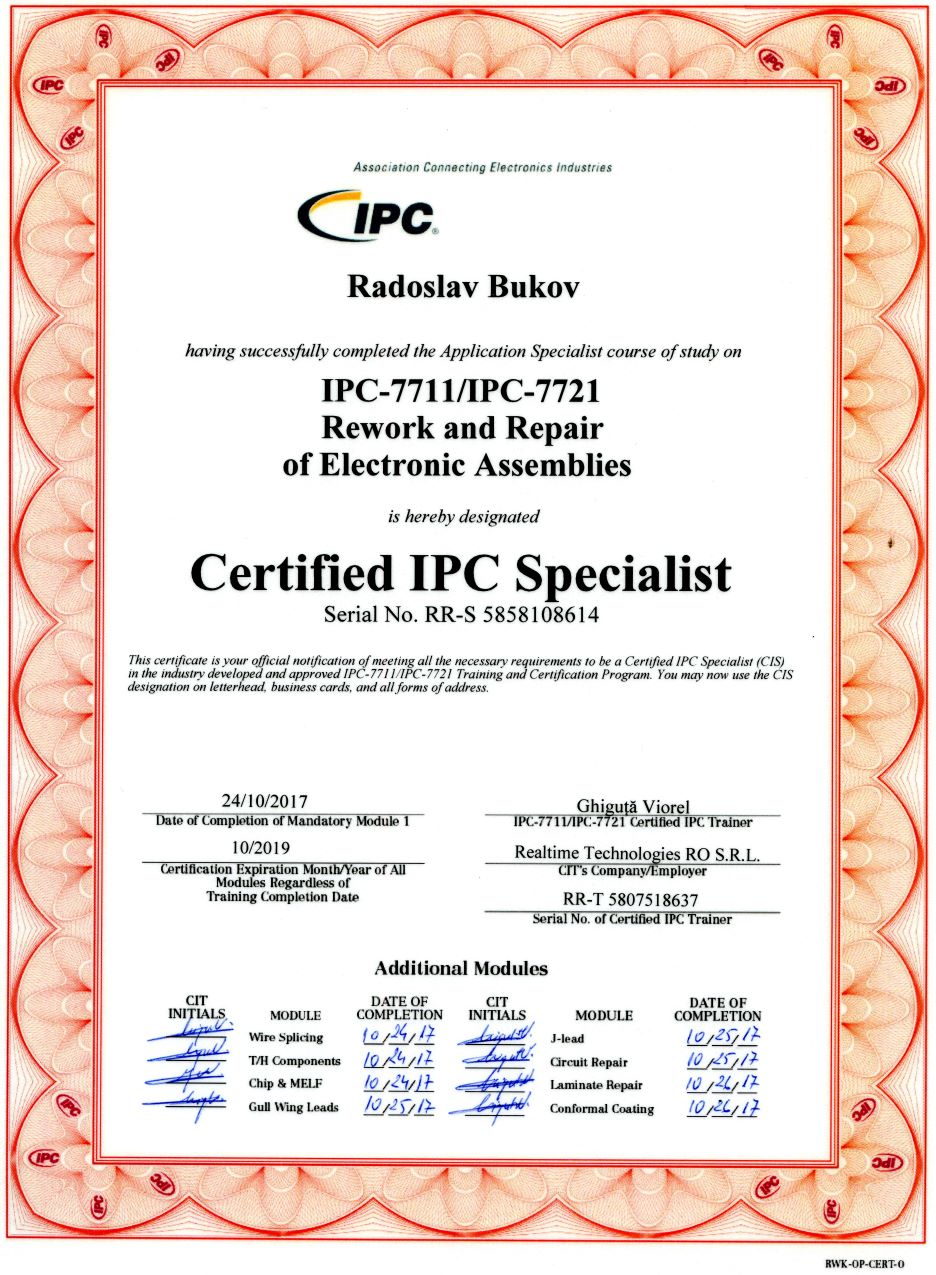 Association Connecting Electronics Industries
IPC®
Radoslav Bukov
having successfully completed the Application Specialist course of study on
IPC-7711/IPC-7721
Rework and Repair
of Electronic Assemblies
is hereby designated
Certified IPC Specialist
Serial No. RR-S 5858108614
This certificate is your official notification of meeting all the necessary requirements to be a Certified IPC Specialist (CIS)
in the industry developed and approved IPC-7711/IPC-7721 Training and Certification Program. You may now use the CIS
designation on letterhead, business cards, and all forms of address.
24/10/2017
Date of Completion of Mandatory Module 1
10/2019
Certification Expiration Month/Year of All
Modules Regardless of
Training Completion Date
Ghiguță Viorel
IPC-7711/IPC-7721 Certified IPC Trainer
Realtime Technologies RO S.R.L.
CIT's Company/Employer
RR-T 5807518637
Serial No. of Certified IPC Trainer
Additional Modules
CIT INITIALS MODULE DATE OF COMPLETION CIT INITIALS MODULE DATE OF COMPLETION
Wire Splicing 10/24/17 J-lead 10/25/17
T/H Components 10/24/17 Circuit Repair 10/25/17
Chip & MELF 10/24/17 Laminate Repair 10/26/17
Gull Wing Leads 10/25/17 Conformal Coating 10/26/17
RWK-OP-CERT-O